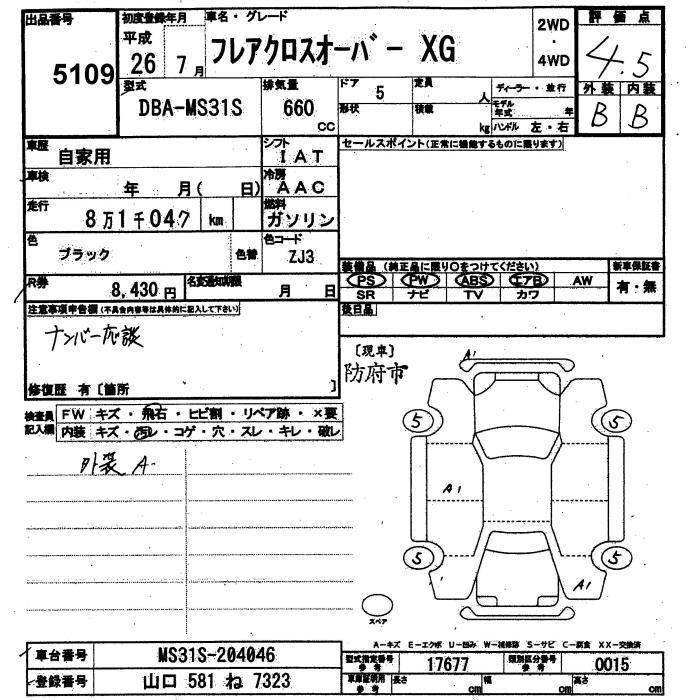 出品番号 5109
初度登録年月 平成 26 7月
車名・グレード フレアクロスオーバー XG
2WD・4WD
評価点 4.5
外装 内装
B B
型式 DBA-MS31S
排気量 660 cc
ドア 5
形状
定員 人
積載 kg
ディーラー・並行
モデル年式 年
ハンドル 左・右
車歴 自家用
シフト IAT
セールスポイント(正常に機能するものに限ります)
車検 年 月( 日)
冷房 AAC
走行 8万1千047 km
燃料 ガソリン
色 ブラック 色替
色コード ZJ3
装備品(純正品に限り○をつけてください)
新車保証書
PS PW ABS エアB AW 有・無
SR ナビ TV カワ
R券 8,430円
名変通知期限 月 日
後日品
注意事項申告欄(不具合内容等は具体的に記入して下さい)
ナンバー応談
修復歴 有〔箇所 〕
〔現車〕
防府市
検査員記入欄
FW キズ・飛石・ヒビ割・リペア跡・×要
内装 キズ・汚レ・コゲ・穴・スレ・キレ・破レ
外装 A
A1
5 5
A1
5 5
A1
スペア
A-キズ E-エクボ U-凹み W-補修跡 S-サビ C-腐食 XX-交換済
車台番号 MS31S-204046
型式指定番号 参考 17677
類別区分番号 参考 0015
登録番号 山口 581 ね 7323
車庫証明用 参考 長さ cm 幅 cm 高さ cm